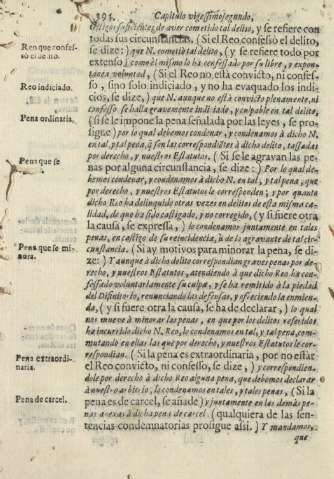 394 Capitulo vigessimosegundo,
testigos suficientes de aver cometido tal delito, y se refiere con
todas sus circunstancias. (Si el Reo confessò el delito,
Reo que confes-
sò el delito.
se dize:) que N. cometiò tal delito, (y se refiere todo por
extenso) como èl mismo lo ha confessado por su libre, y expon-
tanea voluntad, (Si el Reo no està convicto, ni confes-
Reo indiciado.
so, sino solo indiciado, y no ha evaquado los indi-
cios, se dize,) que N. aunque no està convicto plenamente, ni
confesso se halla gravemente indiciado, y culpable en tal delito,
Pena ordinaria.
(si se le impone la pena señalada por las leyes, se pro-
sigue) por lo qual debemos condenar, y condenamos à dicho N.
en tal, y tal pena, q son las correspondiètes à dicho delito, tassadas
por derecho, y nuestros Estatutos. (Si se le agravan las pe-
Pena que se
nas por alguna circunstancia, se dize:) Por lo qual de-
bemos condenar, y condenamos à dicho N. en tal, y tal pena, que
por derecho, y nuestros Estatutos le corresponden; y por quanto
dicho Reo ha delinquido otras veces en delitos de esta misma ca-
lidad, de que ha sido castigado, y no corregido, (y si fuere otra
la causa, se expressa,) lo condenamos juntamente en tales
penas, en castigo de su reincidencia, ù de la agravante de tal cir-
cunstancia. (Si ay motivos para minorar la pena, se di-
Pena que se mi-
nora.
ze:) Y aunque à dicho delito corresponden graves penas por de-
recho, y nuestros Estatutos, atendiendo à que dicho Reo ha con-
fessado voluntariamente su culpa, y se ha remitido à la piedad
del Difinitorio, renunciando las defensas, y ofreciendo la enmien-
da, (y si fuere otra la causa, se ha de declarar,) lo qual
nos mueve à minorar las penas, en que por los delitos referidos
ha incurrido dicho N. Reo, lo condenamos en tal, y tal pena, com-
mutando en ellas las que por derecho, y nuestros Estatutos le cor-
respondian. (Si la pena es extraordinaria, por no estar
Pena extraordi-
naria.
el Reo convicto, ni confesso, se dize,) y correspondien-
dole por derecho à dicho Reo alguna pena, que debemos declarar
à nuestro arbitrio, lo condenamos en tales, y tales penas, (Si la
Pena de carcel.
pena es de carcel, se añade) y juntamente en las demàs pe-
nas anexas à dicha pena de carcel. (qualquiera de las sen-
tencias condemnatorias prosigue assi.) Y mandamos,
que